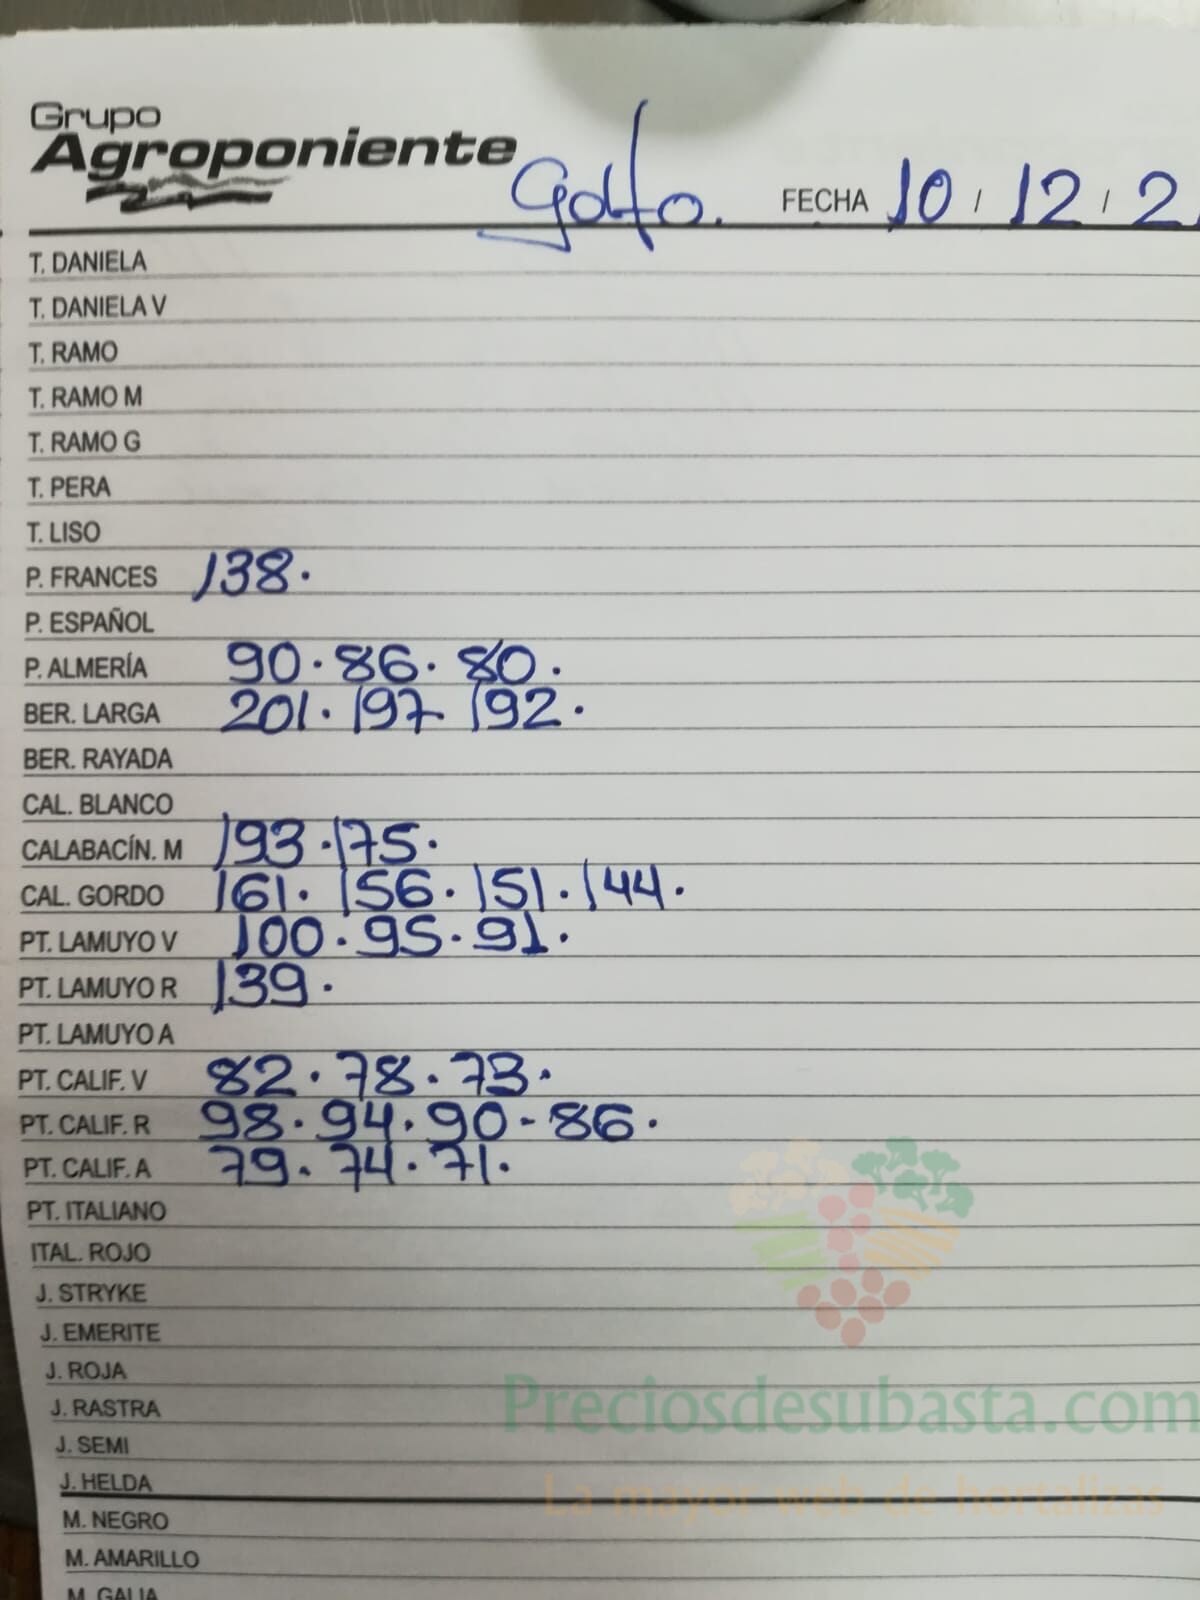 Grupo
Agroponiente
Golfo. FECHA 10 / 12 / 2
T. DANIELA
T. DANIELA V
T. RAMO
T. RAMO M
T. RAMO G
T. PERA
T. LISO
P. FRANCES 138.
P. ESPAÑOL
P. ALMERÍA 90. 86. 80.
BER. LARGA 201. 197 192.
BER. RAYADA
CAL. BLANCO
CALABACÍN. M 193. 175.
CAL. GORDO 161. 156. 151. 144.
PT. LAMUYO V 100. 95. 91.
PT. LAMUYO R 139.
PT. LAMUYO A
PT. CALIF. V 82. 78. 73.
PT. CALIF. R 98. 94. 90 - 86.
PT. CALIF. A 79. 74. 71.
PT. ITALIANO
ITAL. ROJO
J. STRYKE
J. EMERITE
J. ROJA
J. RASTRA
J. SEMI
J. HELDA
M. NEGRO
M. AMARILLO
M. GALIA
Preciosdesubasta.com
La mayor web de hortalizas